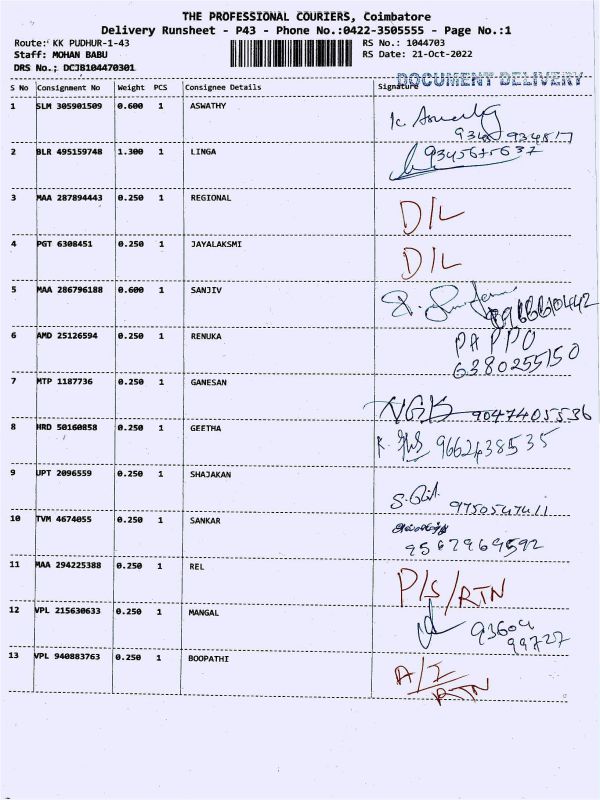 THE PROFESSIONAL COURIERS, Coimbatore
Delivery Runsheet - P43 - Phone No.:0422-3505555 - Page No.:1
Route: KK PUDHUR-1-43 RS No.: 1044703
Staff: MOHAN BABU RS Date: 21-Oct-2022
DRS No.; DCJB104470301
DOCUMENT DELIVERY
S No Consignment No Weight PCS Consignee Details Signature
1 SLM 305901509 0.600 1 ASWATHY
2 BLR 495159748 1.300 1 LINGA
3 MAA 287894443 0.250 1 REGIONAL D/L
4 PGT 6308451 0.250 1 JAYALAKSMI D/L
5 MAA 286796188 0.600 1 SANJIV
6 AMD 25126594 0.250 1 RENUKA PAPPU
6380255150
7 MTP 1187736 0.250 1 GANESAN NGK 9047405536
8 HRD 50160858 0.250 1 GEETHA 9662438535
9 UPT 2096559 0.250 1 SHAJAKAN 9750547411
10 TVM 4674055 0.250 1 SANKAR
9562969592
11 MAA 294225388 0.250 1 REL P/S/RTN
12 VPL 215630633 0.250 1 MANGAL 93604
99727
13 VPL 940883763 0.250 1 BOOPATHI A/I
RTN